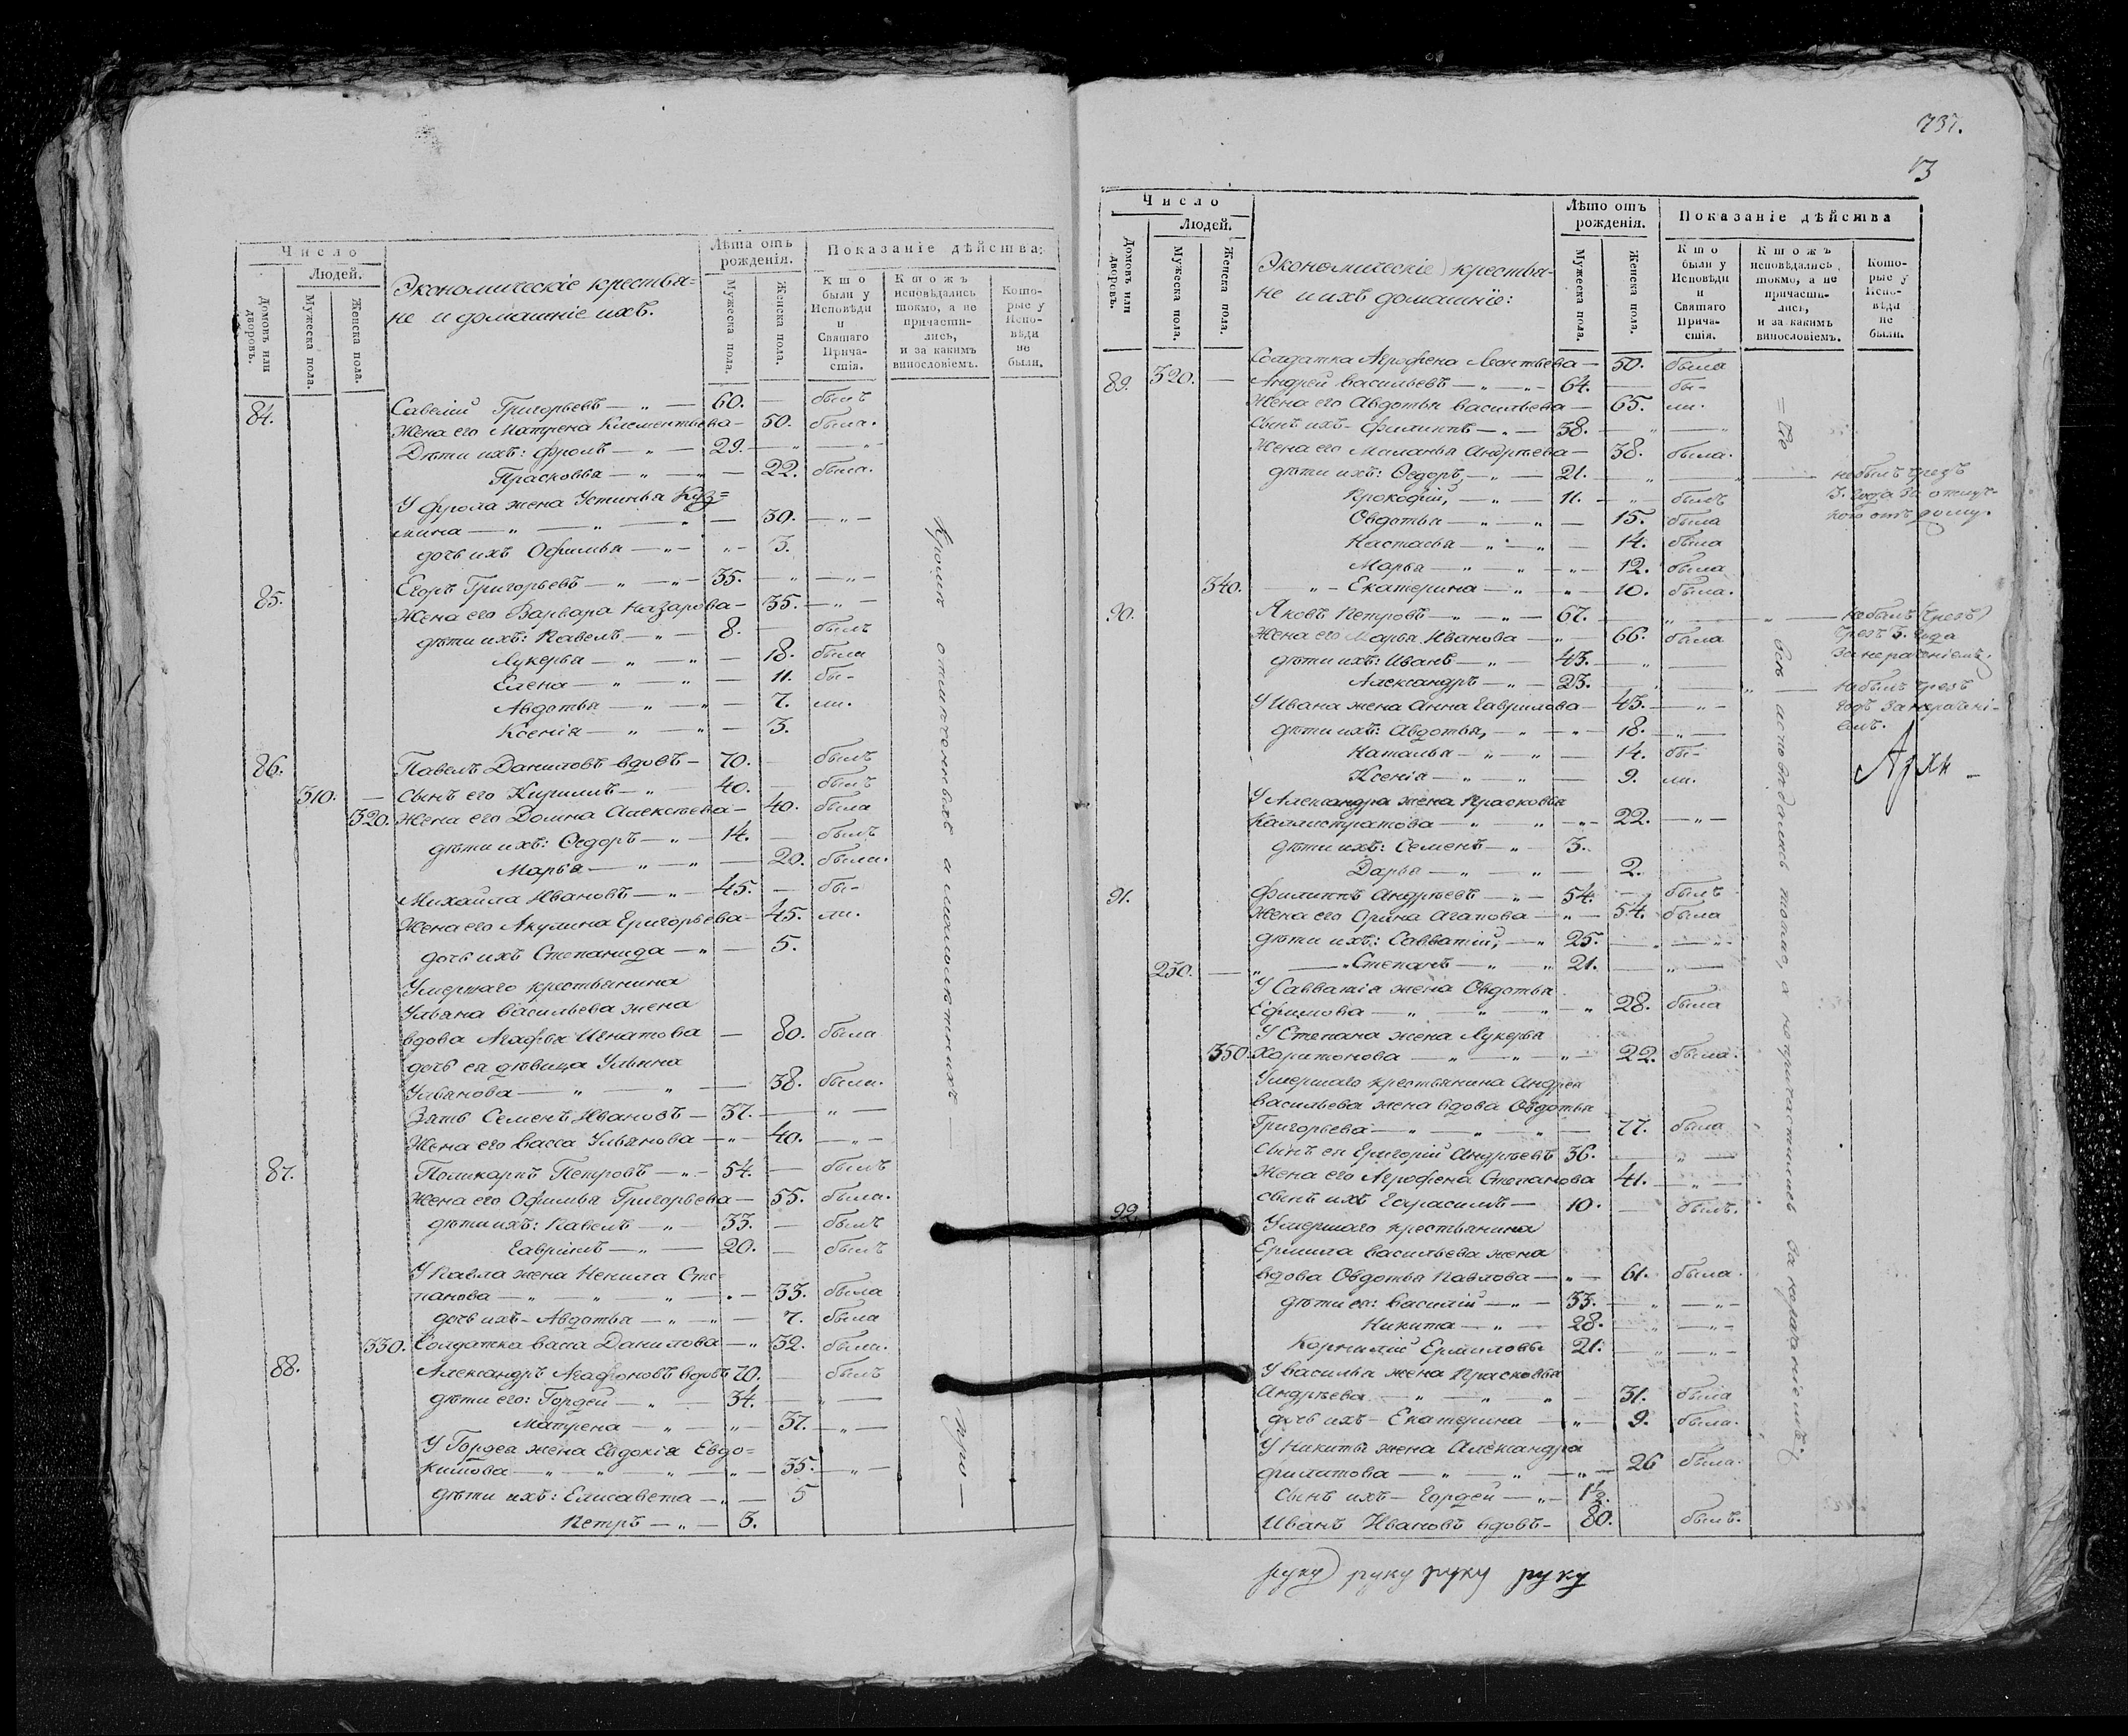 Число
Людей.
Домовъ или дворовъ.
Мужеска пола.
Женска пола.
Экономическіе крестья=
не и домашніе ихъ.
Лѣта отъ рожденія.
Мужеска пола.
Женска пола.
Показаніе дѣйства:
Кто были у Исповѣди и Святаго Прича-стія.
Ктожъ исповѣдались токмо, а не причасти-лись, и за какимъ винословіемъ.
Кото-рые у Испо-вѣди не были.
84. Савелій Григорьевъ — „ — 60. — былъ
Жена его Матрена Климентьева — 50. была.
Дѣти ихъ: Фролъ — „ — 29. — „ — „ —
Прасковья — „ — „ — 22. была.
У Фрола жена Устинья Куз=
мина — „ — „ — „ — 30. — „ —
дочь ихъ Офимья — „ — „ — 3.
85. Егоръ Григорьевъ — „ — „ — 35. — „ — „ —
Жена его Варвара Назарова — 35. — „ —
дѣти ихъ: Павелъ — „ — 8. — былъ
Лукерья — „ — „ — 18. была
Елена — „ — „ — 11. бы-
Авдотья — „ — „ — 7. ли.
Ксенія — „ — „ — 3.
86. Павелъ Даниловъ вдовъ — 70. — былъ
310. — Сынъ его Кирилъ — „ — 40. — былъ
320. Жена его Домна Алексѣева — 40. была
дѣти ихъ: Ѳедоръ — „ — 14. — былъ
Марья — „ — „ — 20. была.
Михайла Ивановъ — „ — 45. — бы-
Жена его Акулина Григорьева — 45. ли.
дочь ихъ Степанида — „ — 5.
Умершаго крестьянина
Ульяна Васильева жена
вдова Агафья Игнатова — 80. была
дочь ея дѣвица Ульяна
Ульянова — „ — „ — 38. была.
Зять Семенъ Ивановъ — 37. — „ —
Жена его Васса Ульянова — „ — 40. — „ —
87. Поликарпъ Петровъ — „ — 54. — былъ
Жена его Офимья Григорьева — 55. была.
дѣти ихъ: Павелъ — „ — 33. — былъ
Гаврилъ — „ — 20. — былъ
У Павла жена Ненила Сте=
панова — „ — „ — „ — 33. была
дочь ихъ — Авдотья — „ — „ — 7. была
330. Солдатка Васса Данилова — „ 32. была.
88. Александръ Агафоновъ вдовъ 70. — былъ
дѣти его: Гордей — „ — 34. — „ —
Матрена — „ — „ — 37. — „ —
У Гордея жена Евдокія Евдо=
кимова — „ — „ — „ — „ — 35. — „ —
дѣти ихъ: Елисавета — „ — 5
Петръ — „ — 3.
Кромѣ отмѣченныхъ а малолѣтнихъ —
про —
737.
13
Число
Людей.
Домовъ или дворовъ.
Мужеска пола.
Женска пола.
Экономическіе крестья-
не и ихъ домашніе:
Лѣто отъ рожденія.
Мужеска пола.
Женска пола.
Показаніе дѣйства
Кто были у Исповѣди и Святаго Прича-стія.
Ктожъ исповѣдались токмо, а не причасти-лись, и за какимъ винословіемъ.
Кото-рые у Испо-вѣди не были.
Солдатка Агрофена Леонтьева — 50. была
89. 320. — Андрей Васильевъ — „ — „ — 64. — бы-
Жена его Авдотья Васильева — 65. ли.
Сынъ ихъ — Филиппъ — „ — 38. — „ — „ —
Жена его Маланья Андрѣева — 38. была.
дѣти ихъ: Ѳедоръ, — „ — 21. — „ — „ — небылъ чрезъ
3. года за отлуч-
кою отъ дому.
Прокофій, — „ — 11. — „ — былъ
Овдотья — „ — „ — 15. была
Настасья — „ — „ — 14. была
Марья — „ — „ — „ — 12. была
340. — „ — Екатерина — „ — „ — 10. была.
90. Яковъ Петровъ — „ — „ — 67. — „ — „ — небылъ (чрезъ)
чрезъ 3. года
занераченіемъ.
Жена его Марья Иванова — „ — 66. была
дѣти ихъ: Иванъ — „ — 43. — „ —
Александръ — „ — 23. — „ — „ — небылъ чрезъ
годъ занераченi-
емъ.
У Ивана жена Анна Гаврилова — 43. — „ —
дѣти ихъ: Авдотья, — „ — „ — 18. — „ —
Наталья — „ — „ — 14. бы-
Ксенія — „ — „ — 9. ли.
Архи -
У Александра жена Прасковья
Каллистратова — „ — „ — „ — 22. — „ —
дѣти ихъ: Семенъ — „ — 3.
Дарья — „ — „ — 2.
91. Филиппъ Андрѣевъ — „ — 54. — „ былъ
Жена его Орина Агапова — „ — 54. была
дѣти ихъ: Савватій, — „ 25. — „ — „ —
230. — „ — „ Степанъ — „ — „ 21. — „ —
У Савватія жена Овдотья
Ефимова — „ — „ — „ — „ 28. была
У Степана жена Лукерья
350. Харитонова — „ — „ — „ — 22. была.
Умершаго крестьянина Андрея
Васильева жена вдова Овдотья
Григорьева — „ — „ — „ — 77. была
Сынъ ея Григорій Андрѣевъ 36. — „ —
Жена его Агрофена Степанова 41. — „ —
сынъ ихъ Гарасимъ — 10. — былъ.
92. Умершаго крестьянина
Ермила Васильева жена
вдова Овдотья Павлова — „ — 61. была.
дѣти ея: Василій — „ — 33. — „ — „ —
Никита — „ — 28. — „ — „ —
Корнилій Ермиловы 21. — „ — „ —
У Василья жена Прасковья
Андрѣева — „ — „ — „ — 31. была
дочь ихъ — Екатерина — „ — 9. была.
У Никиты жена Александра
Филатова — „ — „ — „ — 26 была.
Сынъ ихъ — Гордей — „ — 1½.
Иванъ Ивановъ вдовъ — 80. былъ.
=чіе
всѣ исповѣдались токмо, а непричастились за нераченіемъ
руку руку руку руку